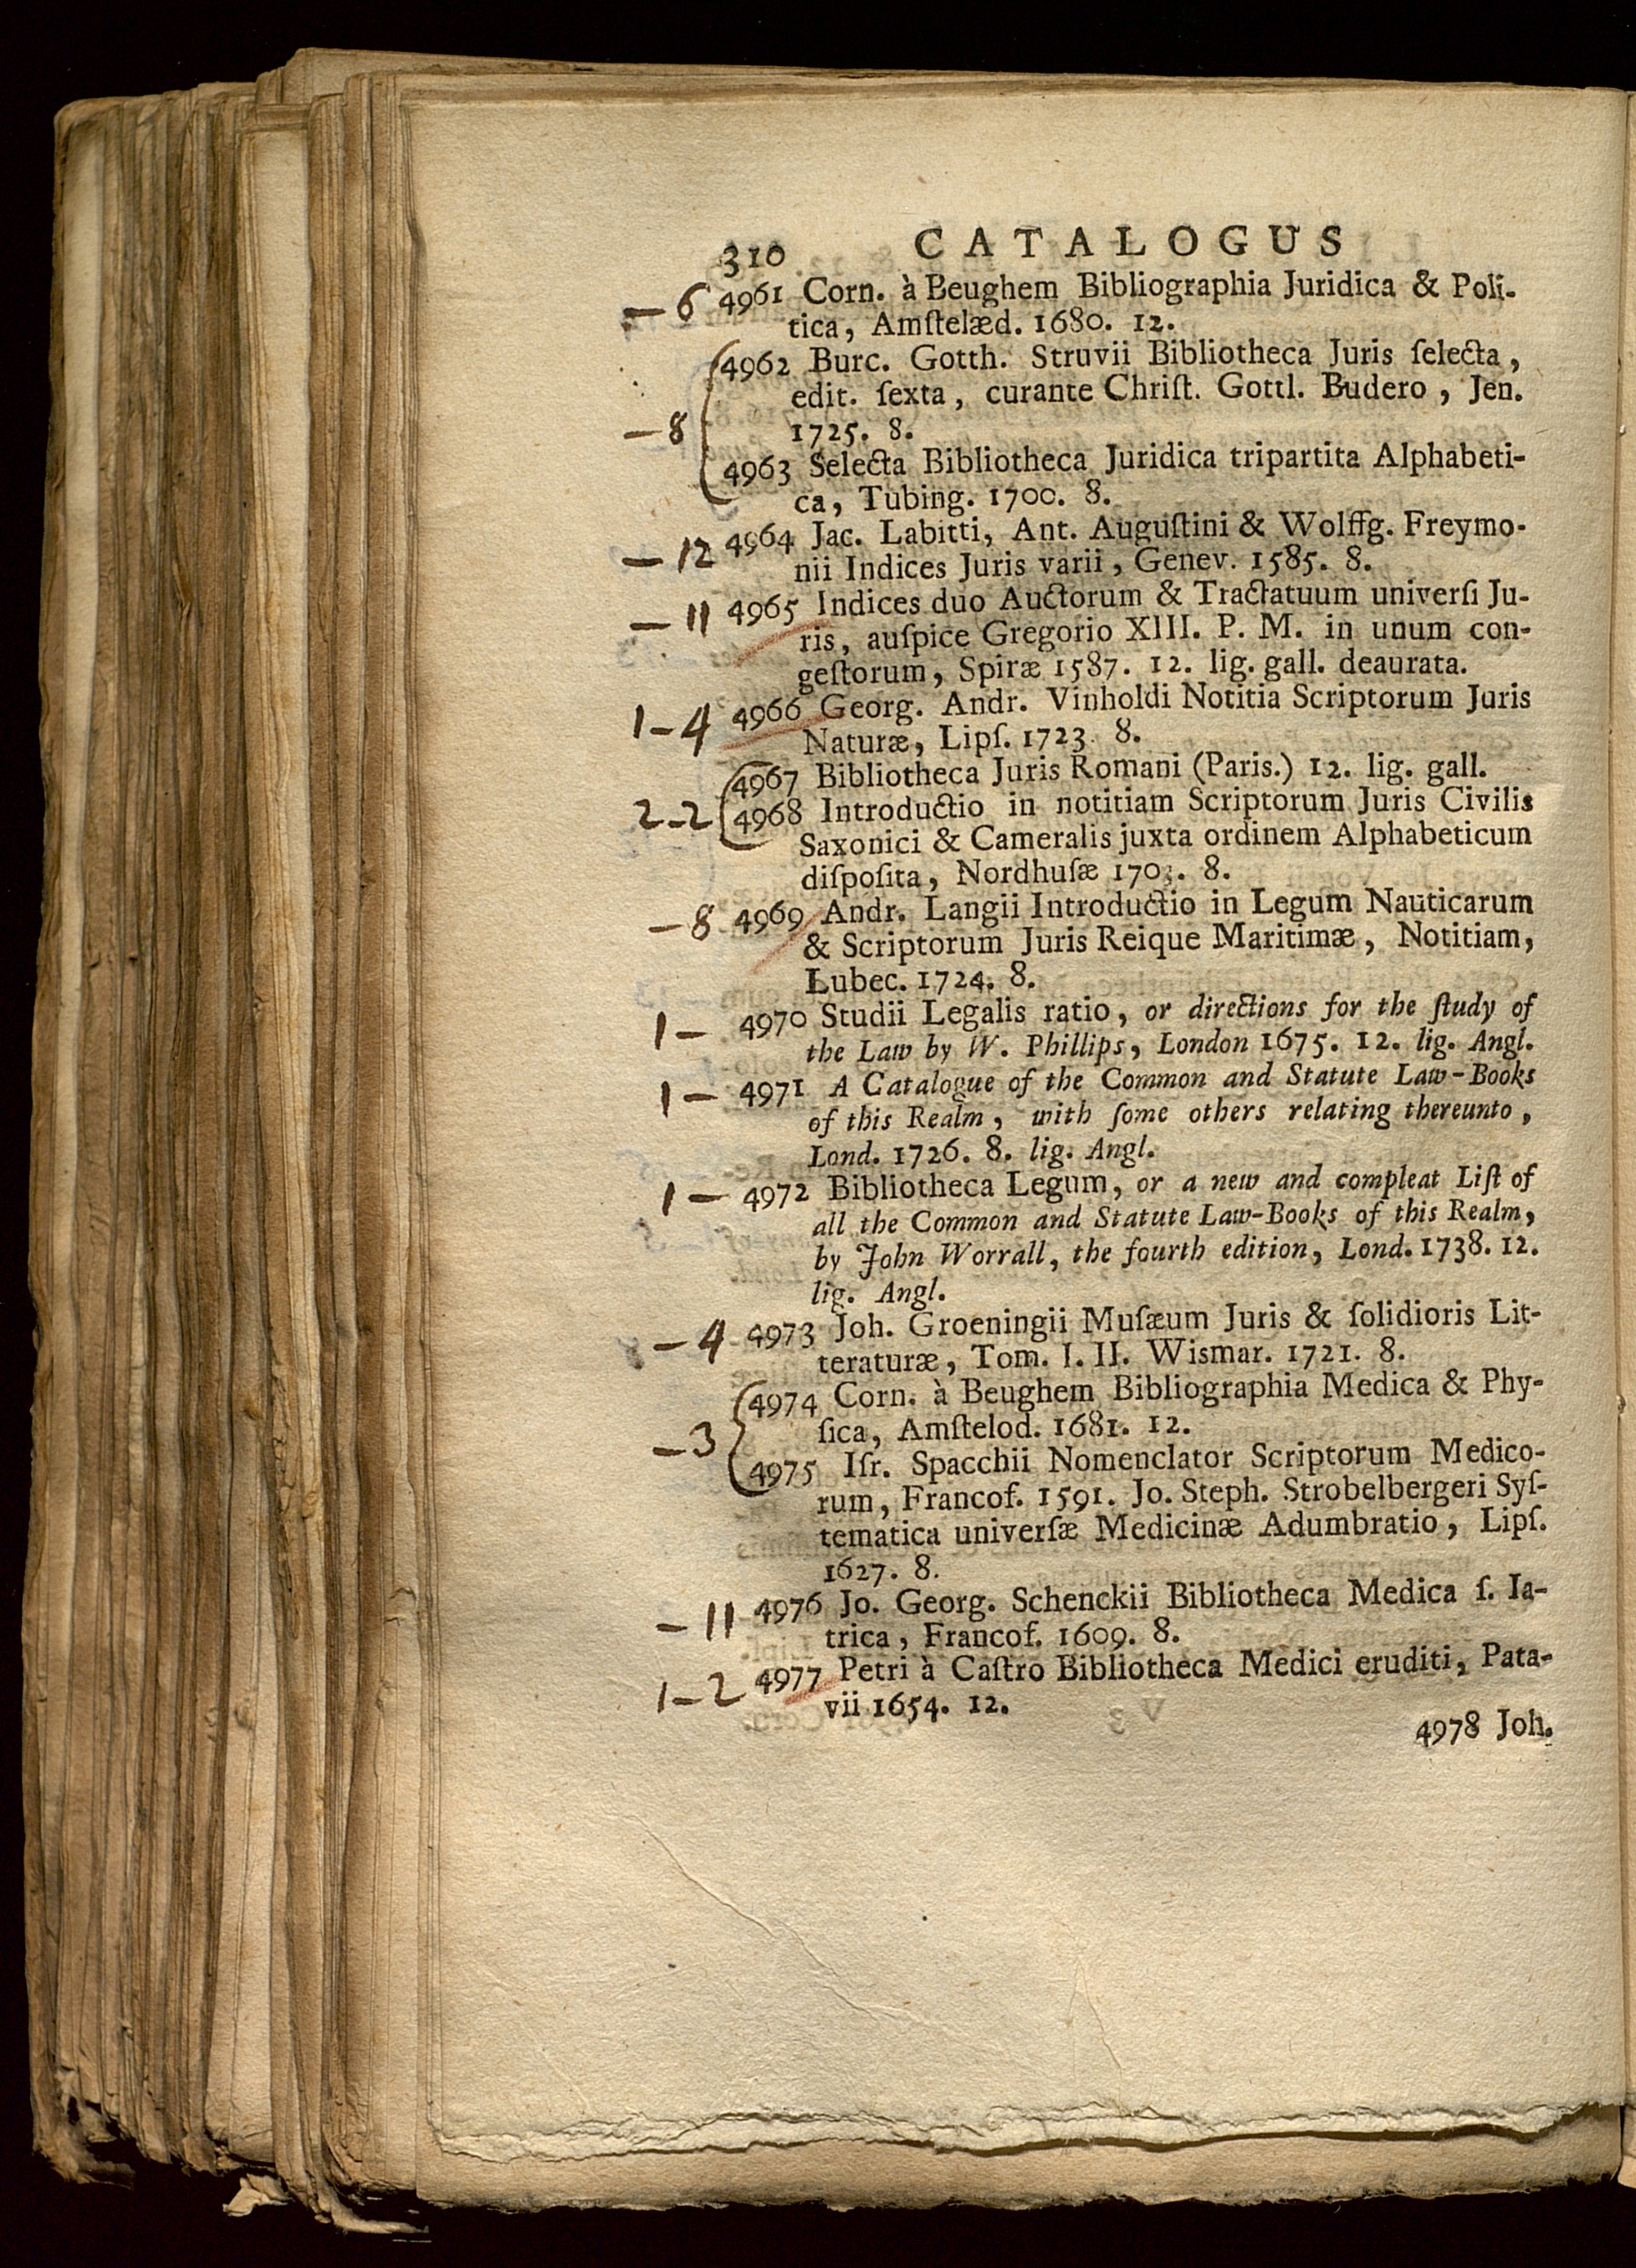 310 CATALOGUS
— 6 4961 Corn. à Beughem Bibliographia Juridica & Poli-
tica, Amſtelæd. 1680. 12.
4962 Burc. Gotth. Struvii Bibliotheca Juris ſelecta,
edit. ſexta, curante Chriſt. Gottl. Budero, Jen.
— 8 1725. 8.
4963 Selecta Bibliotheca Juridica tripartita Alphabeti-
ca, Tubing. 1700. 8.
— 12 4964 Jac. Labitti, Ant. Auguſtini & Wolffg. Freymo-
nii Indices Juris varii, Genev. 1585. 8.
— 11 4965 Indices duo Auctorum & Tractatuum univerſi Ju-
ris, auſpice Gregorio XIII. P. M. in unum con-
geſtorum, Spiræ 1587. 12. lig. gall. deaurata.
1 — 4 4966 Georg. Andr. Vinholdi Notitia Scriptorum Juris
Naturæ, Lipſ. 1723. 8.
4967 Bibliotheca Juris Romani (Paris.) 12. lig. gall.
2 — 2 4968 Introductio in notitiam Scriptorum Juris Civilis
Saxonici & Cameralis juxta ordinem Alphabeticum
diſpoſita, Nordhuſæ 1703. 8.
— 8 4969 Andr. Langii Introductio in Legum Nauticarum
& Scriptorum Juris Reique Maritimæ, Notitiam,
Lubec. 1724. 8.
1 — 4970 Studii Legalis ratio, or directions for the ſtudy of
the Law by W. Phillips, London 1675. 12. lig. Angl.
1 — 4971 A Catalogue of the Common and Statute Law-Books
of this Realm, with ſome others relating thereunto,
Lond. 1726. 8. lig. Angl.
1 — 4972 Bibliotheca Legum, or a new and compleat Liſt of
all the Common and Statute Law-Books of this Realm,
by John Worrall, the fourth edition, Lond. 1738. 12.
lig. Angl.
— 4 4973 Joh. Groeningii Muſæum Juris & ſolidioris Lit-
teraturæ, Tom. I. II. Wismar. 1721. 8.
4974 Corn. à Beughem Bibliographia Medica & Phy-
— 3 ſica, Amſtelod. 1681. 12.
4975 Iſr. Spacchii Nomenclator Scriptorum Medico-
rum, Francof. 1591. Jo. Steph. Strobelbergeri Syſ-
tematica univerſæ Medicinæ Adumbratio, Lipſ.
1627. 8.
— 11 4976 Jo. Georg. Schenckii Bibliotheca Medica ſ. Ia-
trica, Francof. 1609. 8.
1 — 2 4977 Petri à Caſtro Bibliotheca Medici eruditi, Pata-
vii 1654. 12.
4978 Joh.